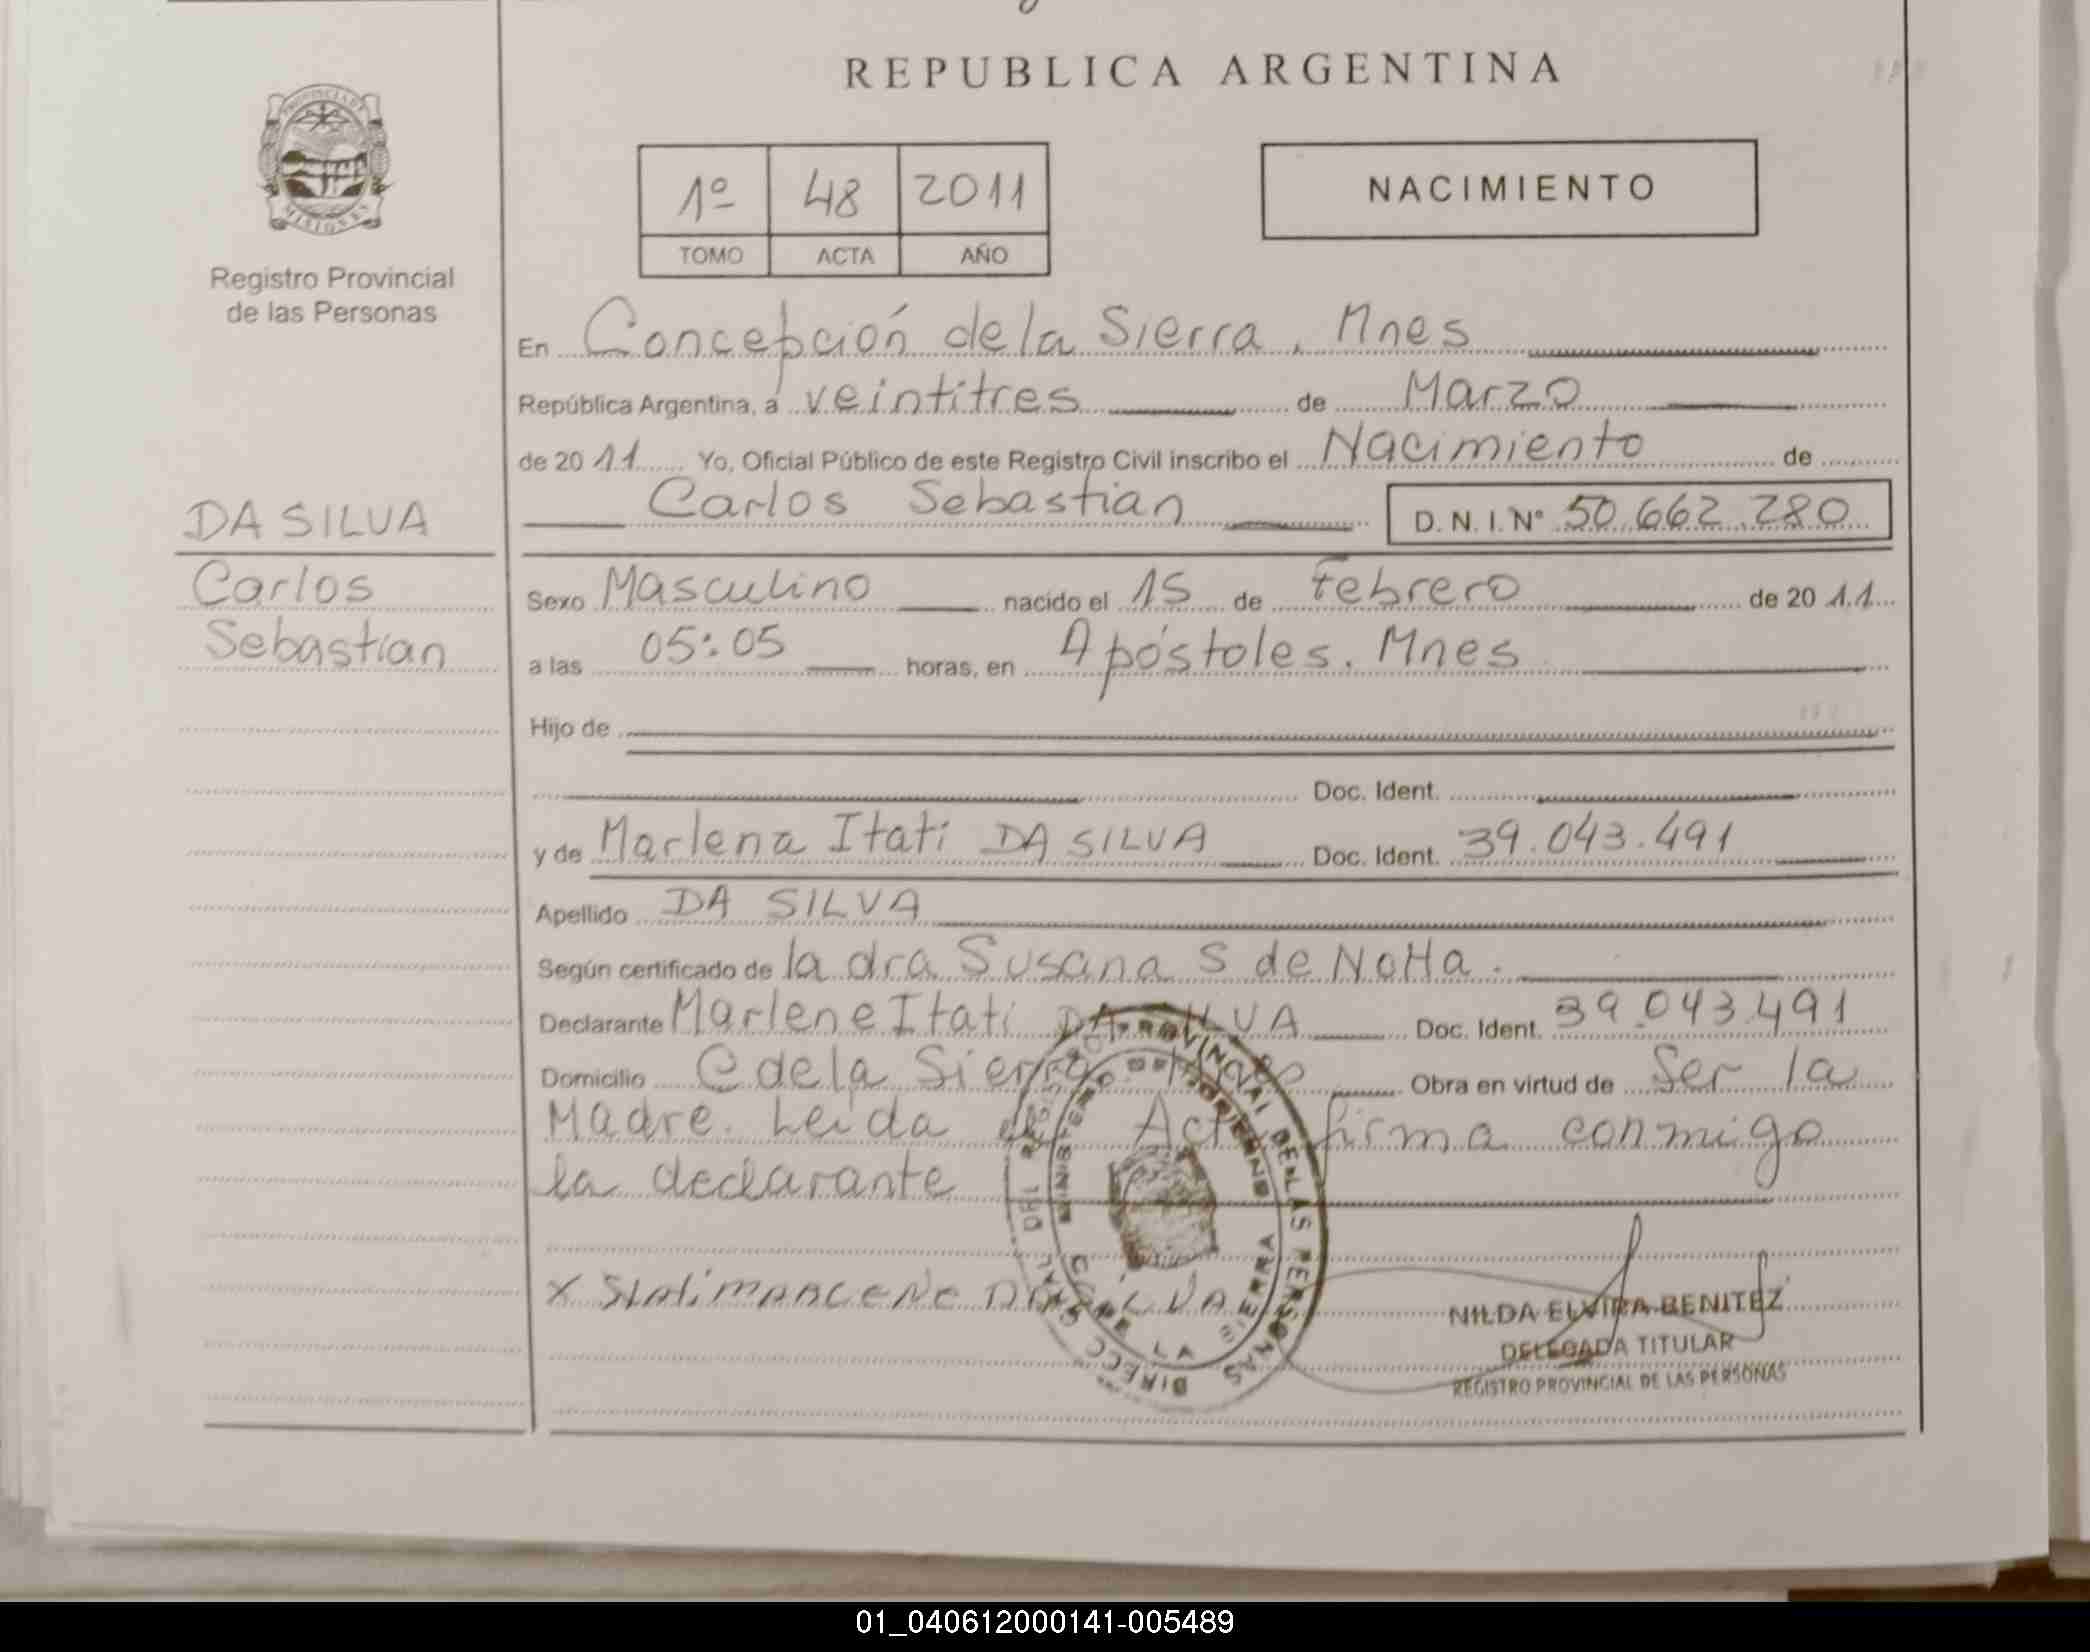 REPUBLICA ARGENTINA
PROVINCIA DE
MISIONES
Registro Provincial
de las Personas
1º 48 2011
TOMO ACTA AÑO
NACIMIENTO
En Concepción de la Sierra, Mnes
República Argentina, a veintitres de Marzo
de 2011 Yo, Oficial Público de este Registro Civil inscribo el Nacimiento de
Carlos Sebastian D. N. I. Nº 50.662.280
DA SILVA
Carlos
Sebastian
Sexo Masculino nacido el 15 de Febrero de 2011
a las 05:05 horas, en Apóstoles. Mnes
Hijo de
Doc. Ident.
y de Marlena Itati DA SILVA Doc. Ident. 39.043.491
Apellido DA SILVA
Según certificado de la dra Susana S de Notta.
Declarante Marlene Itati DA SILVA Doc. Ident. 39.043.491
Domicilio C de la Sierra Obra en virtud de Ser la
Madre. Leida el Acta firma conmigo
la declarante
NILDA ELVIRA BENITEZ
DELEGADA TITULAR
REGISTRO PROVINCIAL DE LAS PERSONAS
01_040612000141-005489